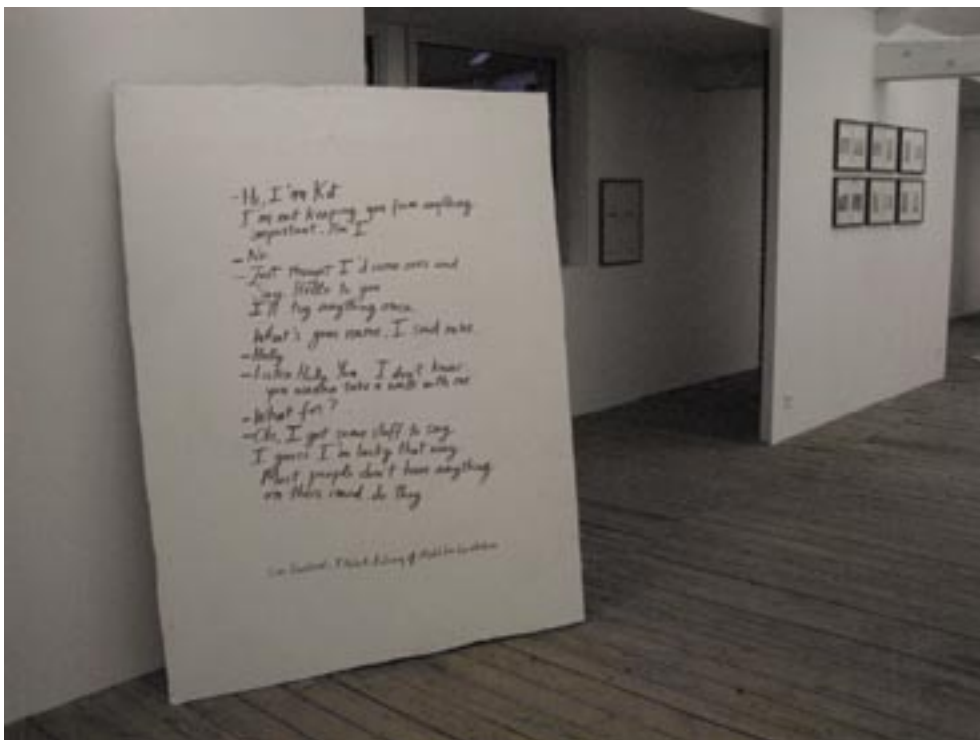 - Hi, I'm Kit
I'm not keeping you from anything
important. Am I
- No
- Just thought I'd come over and
say Hello to you
I'll try anything once
What's your name, I said mine
- Holly
- Listen Holly You I don't know,
you wanna take a walk with me
- What for?
- Oh, I got some stuff to say
I guess I'm lucky that way
Most people don't have anything
on their mind do they